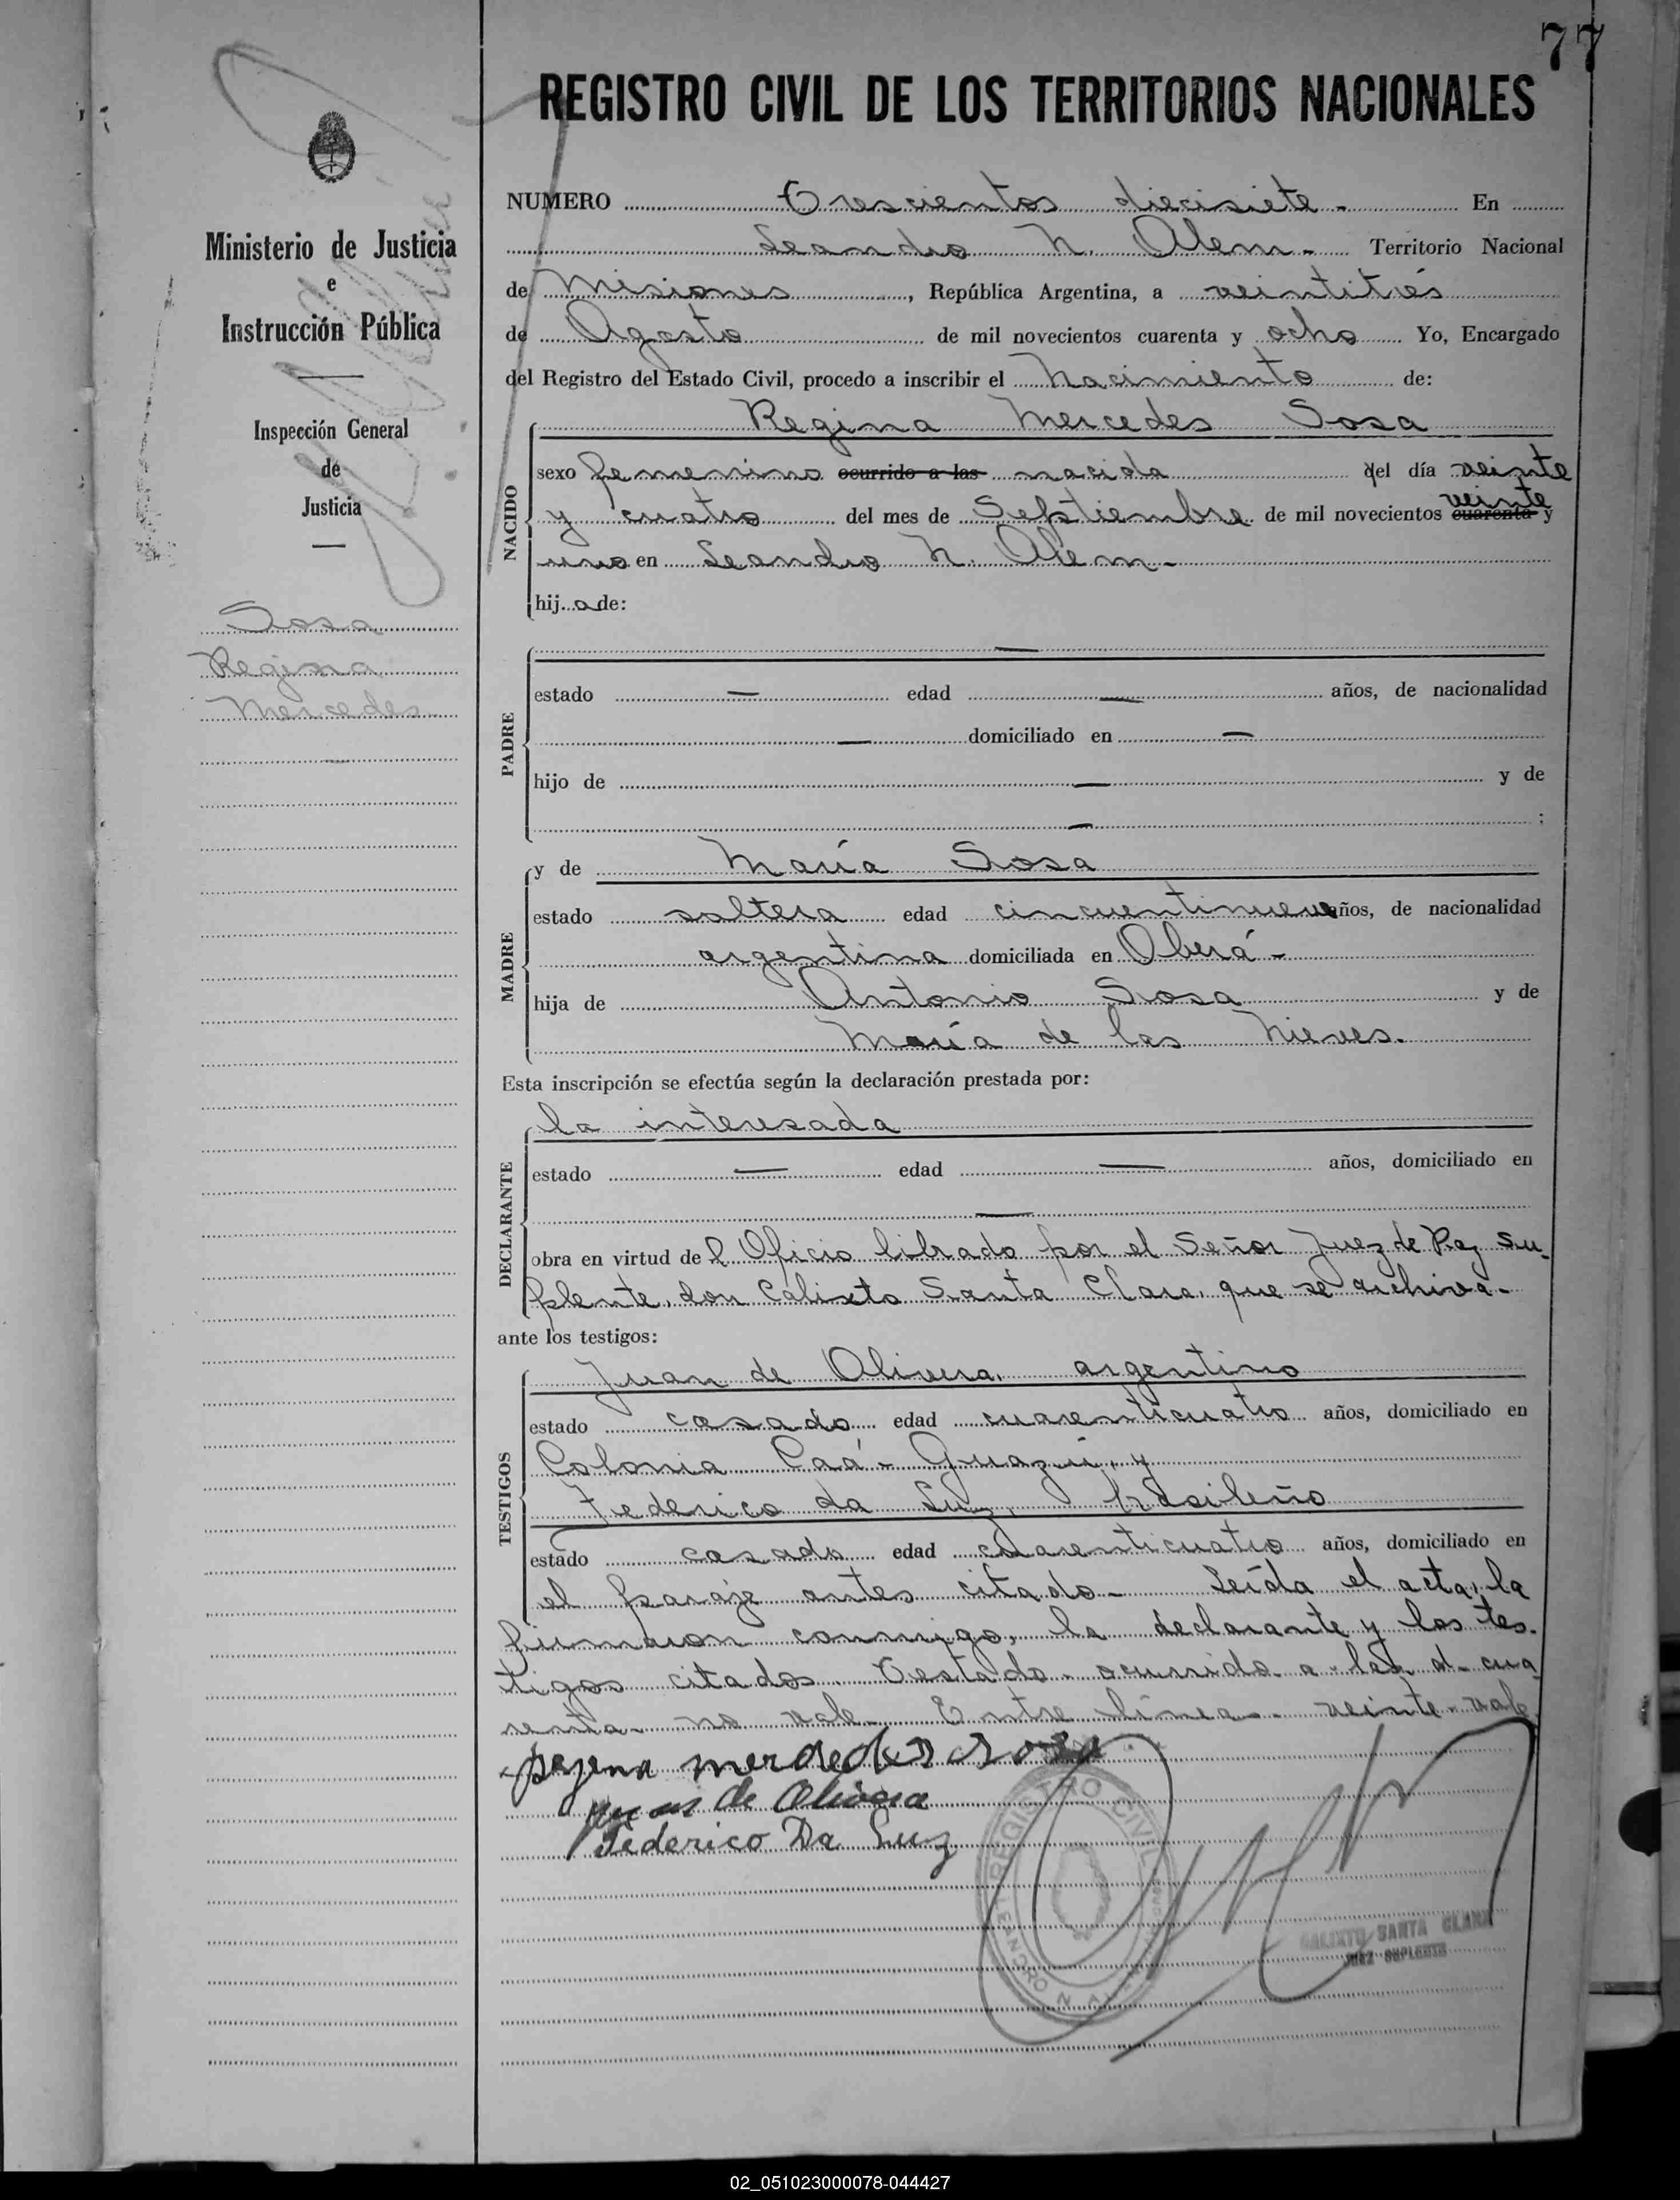 77
REGISTRO CIVIL DE LOS TERRITORIOS NACIONALES
Ministerio de Justicia
e
Instrucción Pública
Inspección General
de
Justicia
Sosa
Regina
Mercedes
NUMERO Trescientos diecisiete.- En
Leandro N. Alem.- Territorio Nacional
de Misiones, República Argentina, a veintitrés
de Agosto de mil novecientos cuarenta y ocho Yo, Encargado
del Registro del Estado Civil, procedo a inscribir el Nacimiento de:
NACIDO
Regina Mercedes Sosa
sexo femenino ocurrido a las nacida del día veinte
y cuatro del mes de Septiembre de mil novecientos cuarenta veinte y
uno en Leandro N. Alem.-
hij a de:
PADRE
estado — edad — años, de nacionalidad
— domiciliado en —
hijo de — y de
— ;
MADRE
y de María Sosa
estado soltera edad cincuentinueve años, de nacionalidad
argentina domiciliada en Oberá -
hija de Antonio Sosa y de
María de las Nieves.
Esta inscripción se efectúa según la declaración prestada por:
DECLARANTE
la interesada
estado — edad — años, domiciliado en
—
obra en virtud de l Oficio librado por el Señor Juez de Paz Su-
plente, don Calixto Santa Clara, que se archiva.-
ante los testigos:
TESTIGOS
Juan de Olivera, argentino
estado casado edad cuarenticuatro años, domiciliado en
Colonia Caá-Guazú, y
Federico da Luz, brasileño
estado casado edad cuarenticuatro años, domiciliado en
el paraje antes citado.- Leída el acta, la
firmaron conmigo, la declarante y los tes-
tigos citados. Testado- ocurrido a las- cua
renta- no vale. Entre línea- veinte- vale
mercedes sosa
de Olivera
Federico Da Luz
REGISTRO CIVIL
LEANDRO N. ALEM
CALIXTO SANTA CLARA
JUEZ SUPLENTE
02_051023000078-044427